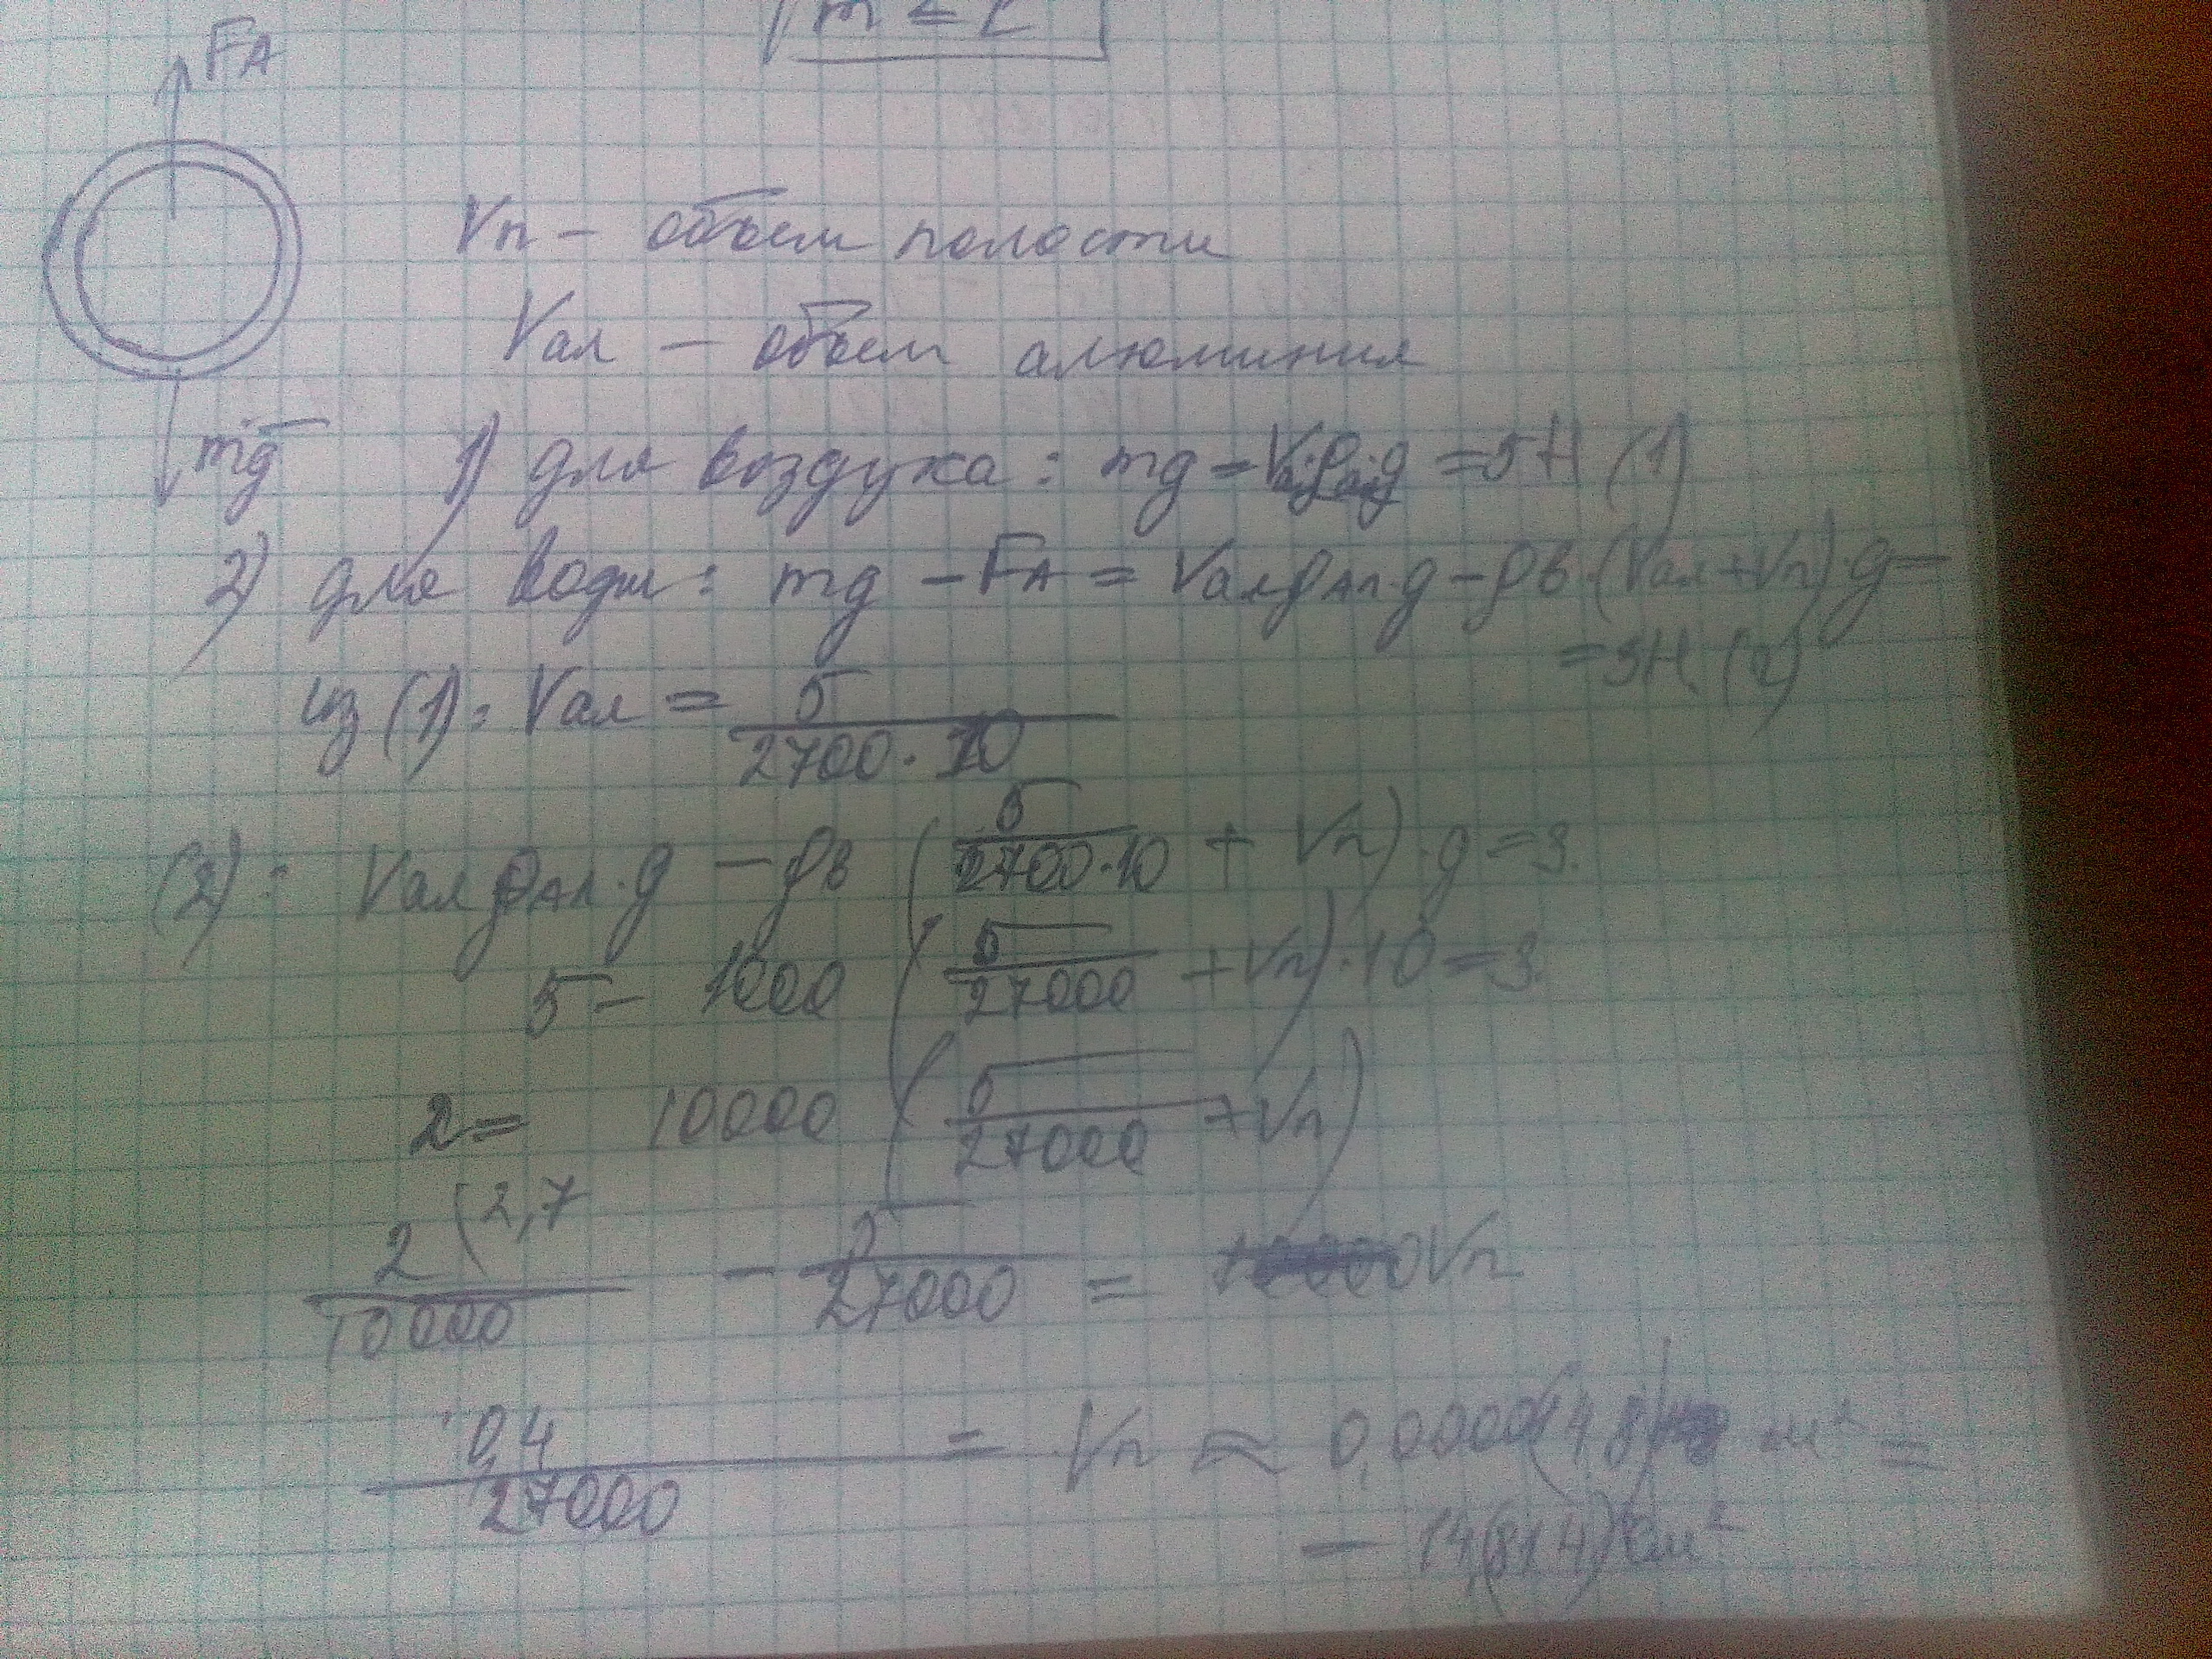 FA
Vп – объем полости
Vал – объем алюминия
mg
1) для воздуха: mg = Vалρал g = 5Н (1)
2) для воды: mg – FA = VалρАл·g – ρв·(Vал+Vп)·g =
= 3Н (2)
из (1): Vал = 5/(2700·10)
(2): VалρАл·g – ρв (5/(2700·10) + Vп)·g = 3.
5 – 1000 (5/27000 + Vп)·10 = 3.
2 = 10000 (5/27000 + Vп)
2(2,7/10000 – 5/27000 = Vп
0,4/27000 = Vп ≈ м² =
= см²